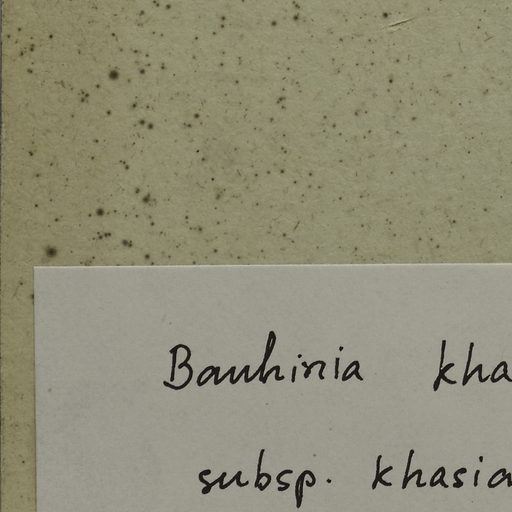 Bauhinia kha
subsp. khasia